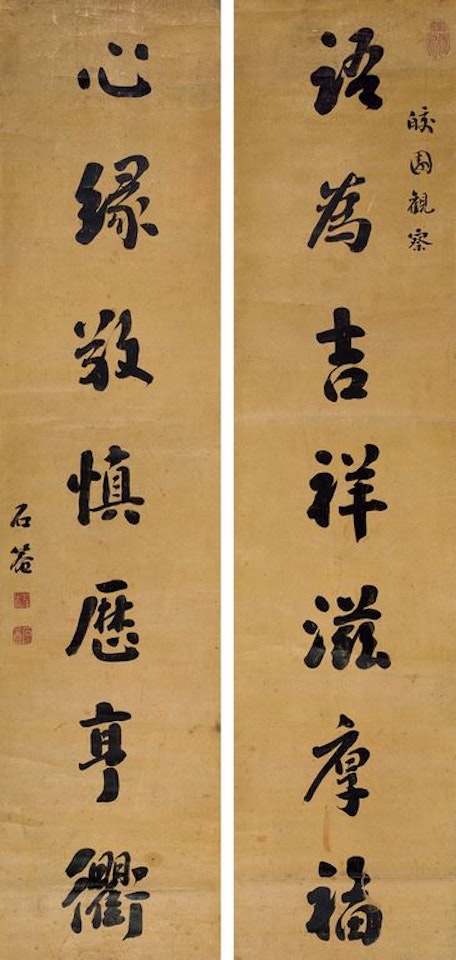 皎園觀察
語為吉祥滋厚福
心緣敬慎歷亨衢
石菴